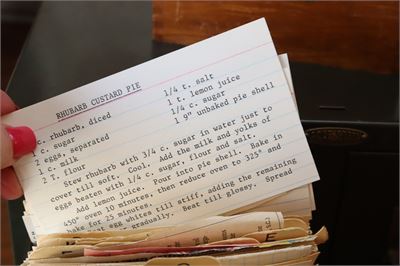 RHUBARB CUSTARD PIE
c. rhubarb, diced
c. sugar
2 eggs, separated
1 c. milk
2 T. flour
1/4 t. salt
1 t. lemon juice
1/4 c. sugar
1 9" unbaked pie shell
Stew rhubarb with 3/4 c. sugar in water just to
cover till soft. Cool. Add the milk and yolks of
eggs beaten with 1/4 c. sugar, flour and salt.
Add lemon juice. Pour into pie shell. Bake in
450° oven 10 minutes, then reduce oven to 325° and
bake for 25 minutes.
eat egg whites till stiff, adding the remaining
gradually. Beat till glossy. Spread